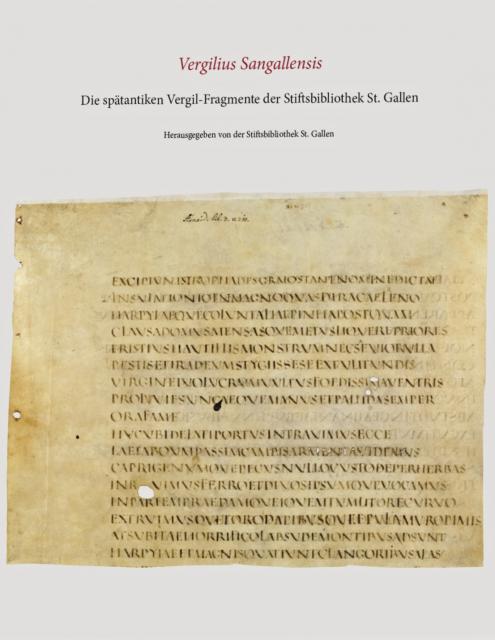 Vergilius Sangallensis
Die spätantiken Vergil-Fragmente der Stiftsbibliothek St. Gallen
Herausgegeben von der Stiftsbibliothek St. Gallen
Aeneid. lib.
EXCIPIVNTSTROPHADESGRAIOSTANTNOMINEDICTAE
INSVLAEIONIOINMAGNOQVASDIRACAELENO
HARPYIAEQVECOLVNTALIAEPHINEIAPOSTQVAM
CLAVSADOMVSMENSASQVEMETVLIQVEREPRIORES
TRISTIVSHAVTILLISMONSTRVMNECSAEVIORVLLA
PESTISETIRADEVMSTYGIISSESEEXTVLITVNDIS
VIRGINEIVOLVCRVMVVLTVSFOEDISSIMAVENTRIS
PROLVVIESVNCAEQVEMANVSETPALLIDASEMPER
ORAFAME
HVCVBIDELATIPORTVSINTRAVIMVSECCE
LAETABOVMPASSIMCAMPISARMENTAVIDEMVS
CAPRIGENVMQVEPECVSNVLLOCVSTODEPERHERBAS
INRVIMVSFERROETDIVOSIPSVMQVEVOCAMVS
INPARTEMPRAEDAMQVEIOVEMTVMLITORECVRVO
EXTRVIMVSQVETORODAPIBVSQVEEPVLAMVROPIMIS
ATSVBITAEHORRIFICOLABSVDEMONTIBVSADSVNT
HARPYIAEETMAGNISQVATIVNTCLANGORIBVSALAS